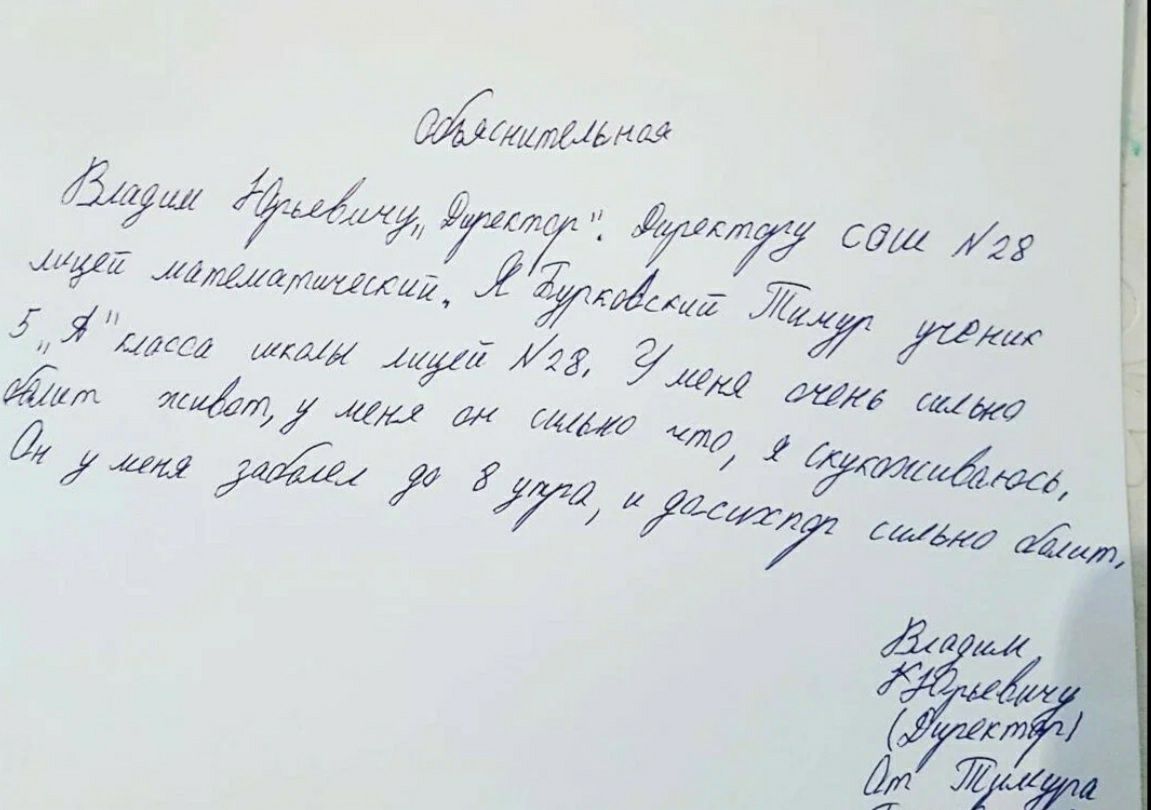 Объяснительная
Владим Юрьевичу „Директор". Директору СОШ №28
лицей математический. Я Бурковский Тимур ученик
5 „А" класса школы лицей №28. У меня очень сильно
болит живот, у меня он сильно что, я скукоживаюсь.
Он у меня заболел до 8 утра, и до-сихпор сильно болит.
Владим
Юрьевичу
(Директор)
От Тимура